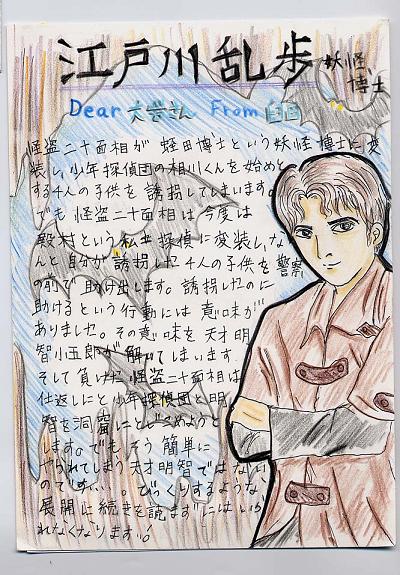 江戸川乱歩 妖怪
博士
Dear さん From
怪盗二十面相が 蛭田博士という妖怪博士に変
装し、少年探偵団の相川くんを始めと
する4人の子供を誘拐してしまいます。
でも怪盗二十面相は今度は
殿村という私立探偵に変装し、な
んと自分が誘拐した4人の子供を警察
の前で助け出します。誘拐したのに
助けるという行動には意味が
ありました。その意味を天才明
智小五郎が解いてしまいます
そして負けた怪盗二十面相は
仕返しにと少年探偵団と明
智を洞窟にとじこめようと
します。でもそう簡単に
やられてしまう天才明智ではない
のです、、、。びっくりするような
展開に続きを読まずにはいら
れなくなります!